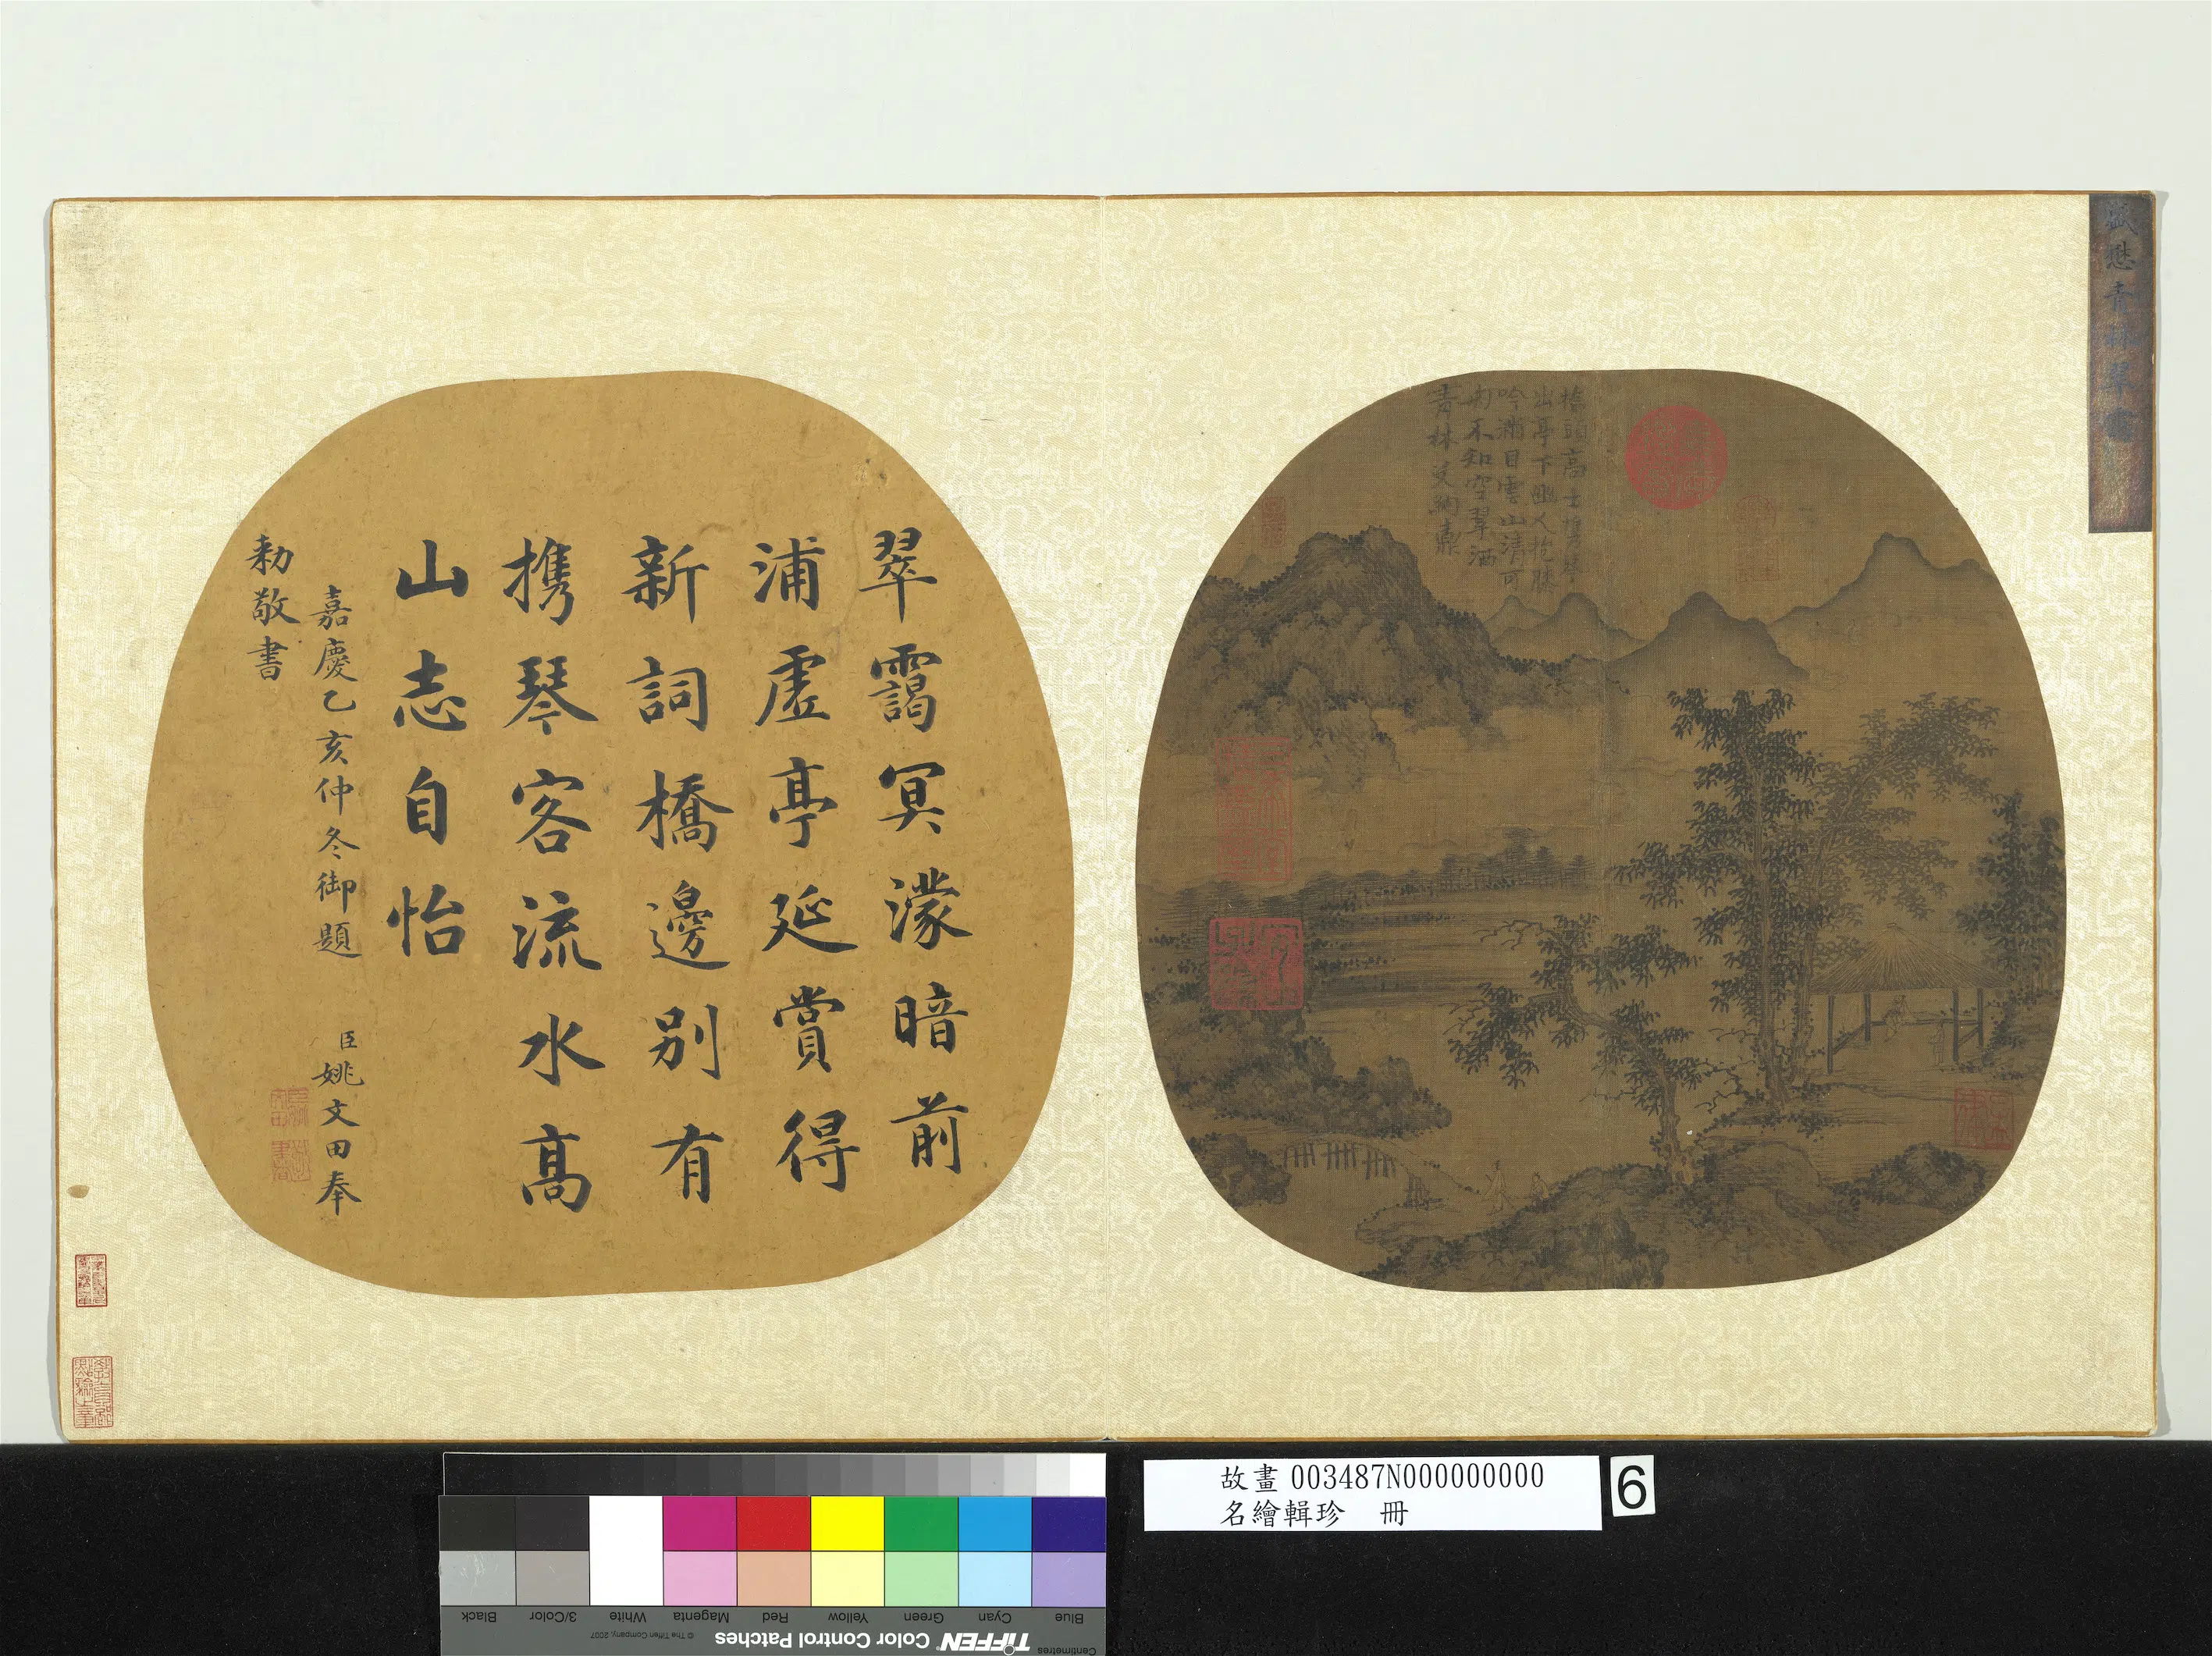 盛懋青林翠靄
橋頭高士攜琴
出亭下幽人抱膝
吟滿目雲山清可
不知空翠洒
青林
翠靄冥濛暗前
浦虛亭延賞得
新詞橋邊別有
携琴客流水高
山志自怡
嘉慶乙亥仲冬御題
臣姚文田奉
勅敬書
故畫 003487N000000000
名繪輯珍 冊
6
Centimetres
TIFFEN Color Control Patches
© The Tiffen Company, 2007
Blue
Cyan
Green
Yellow
Red
Magenta
White
3/Color
Black